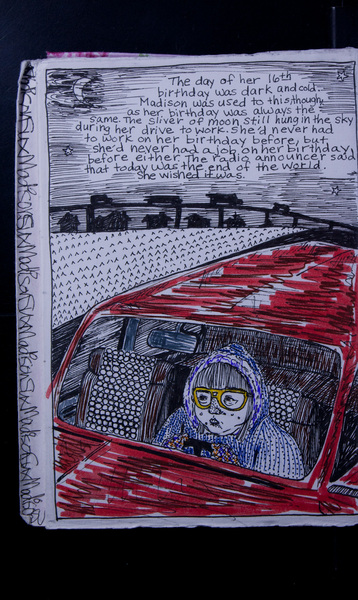 The day of her 16th
birthday was dark and cold.
Madison was used to this, though,
as her birthday was always the
same. The sliver of moon still hung in the sky
during her drive to work. She'd never had
to work on her birthday before, but
she'd never had a job on her birthday
before either. The radio announcer said
that today was the end of the world.
She wished it was.